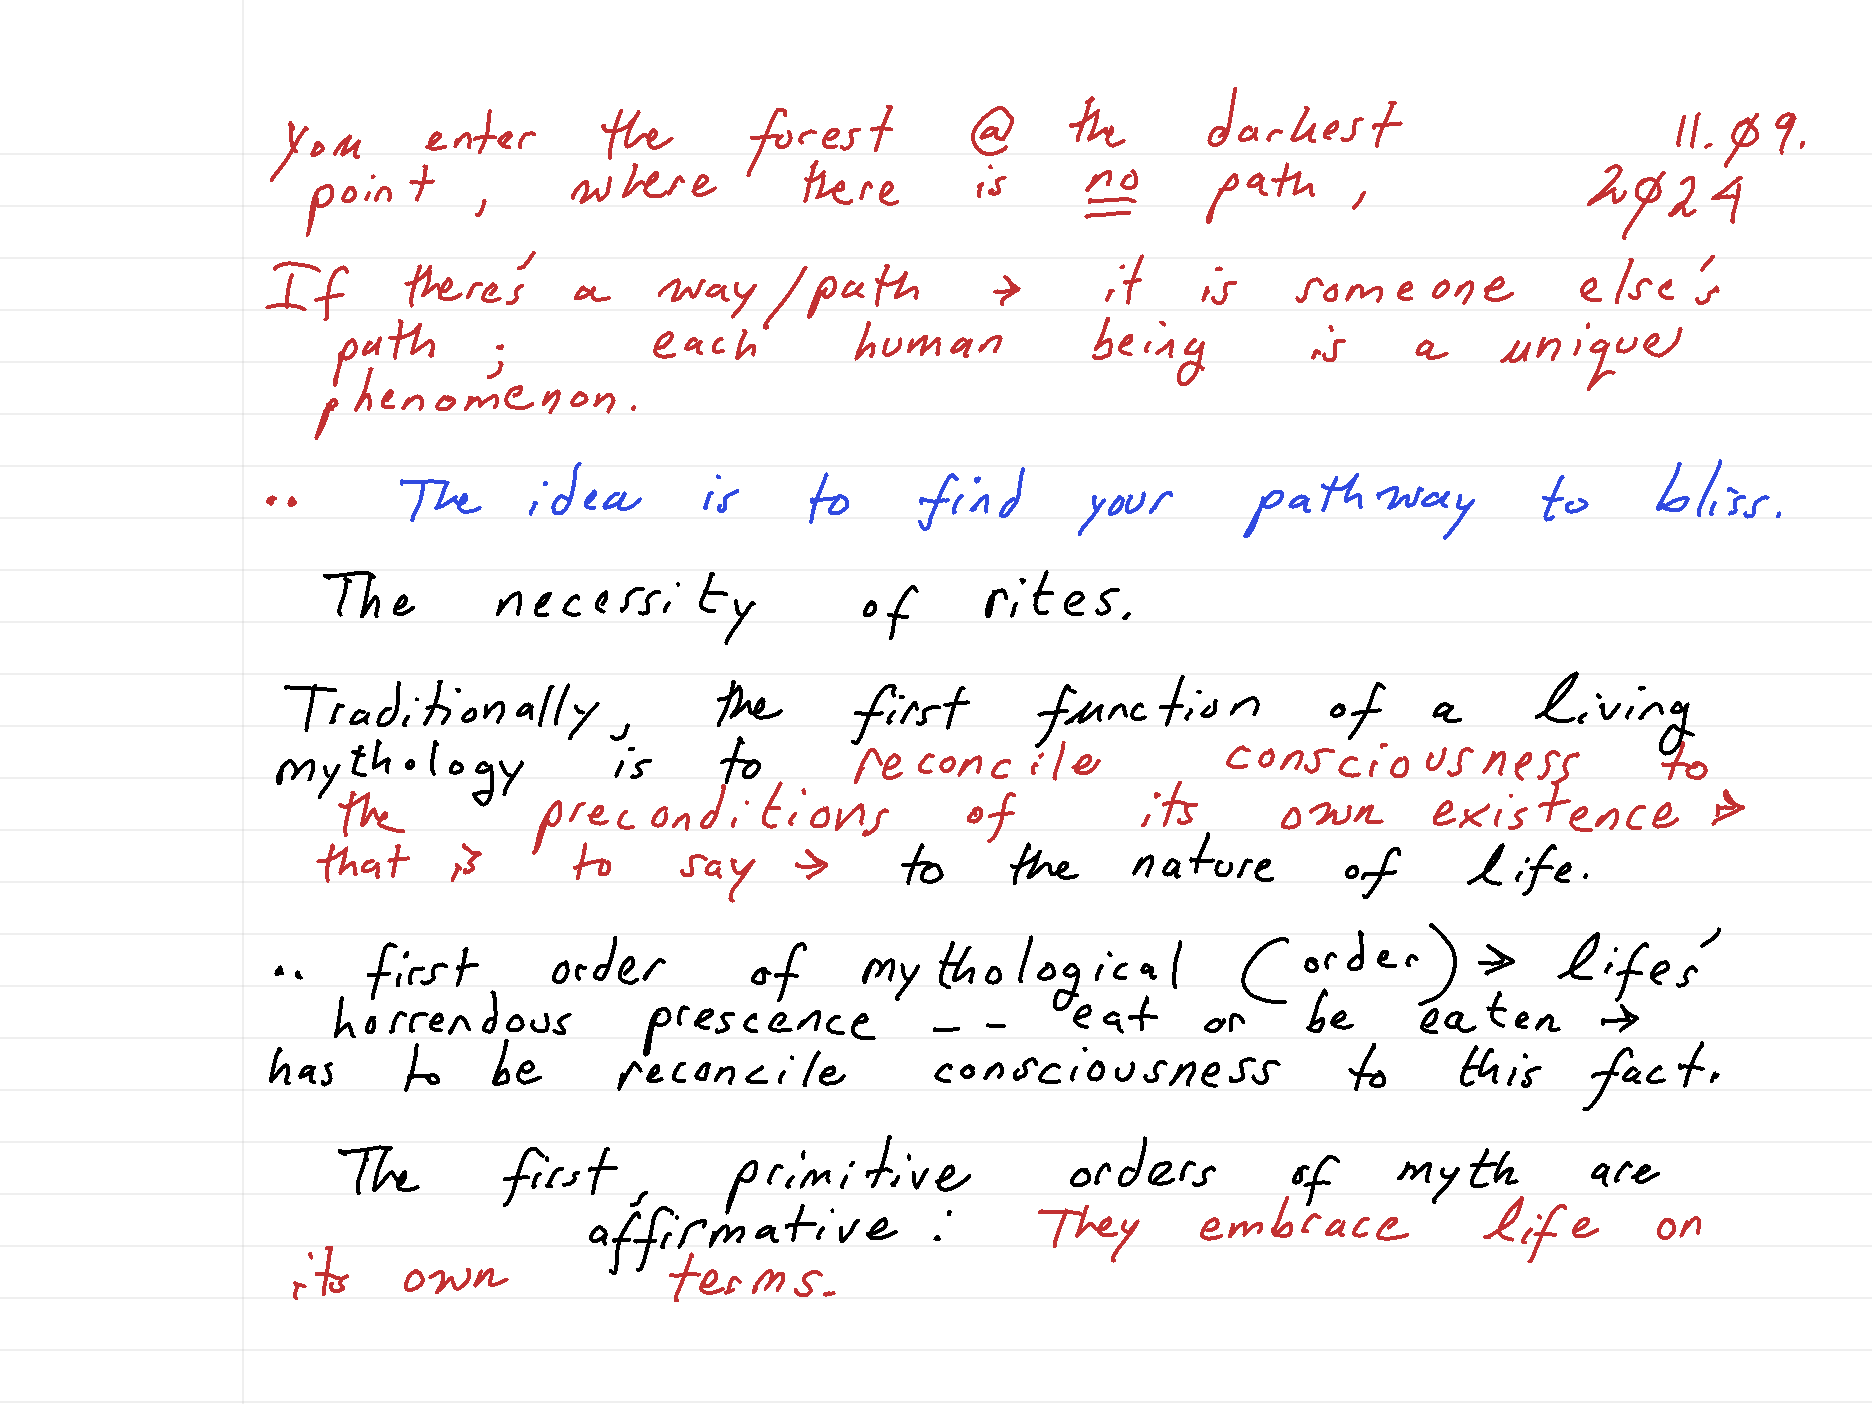 You enter the forest @ the darkest 11.Ø9.
point, where there is no path, 2Ø24
If there's a way/path → it is someone else's
path; each human being is a unique
phenomenon.
.. The idea is to find your pathway to bliss.
The necessity of rites.
Traditionally, the first function of a living
mythology is to reconcile consciousness to
the preconditions of its own existence →
that is to say → to the nature of life.
.. first order of mythological (order) → lifes'
horrendous prescence -- eat or be eaten →
has to be reconcile consciousness to this fact.
The first, primitive orders of myth are
affirmative: They embrace life on
its own terms.